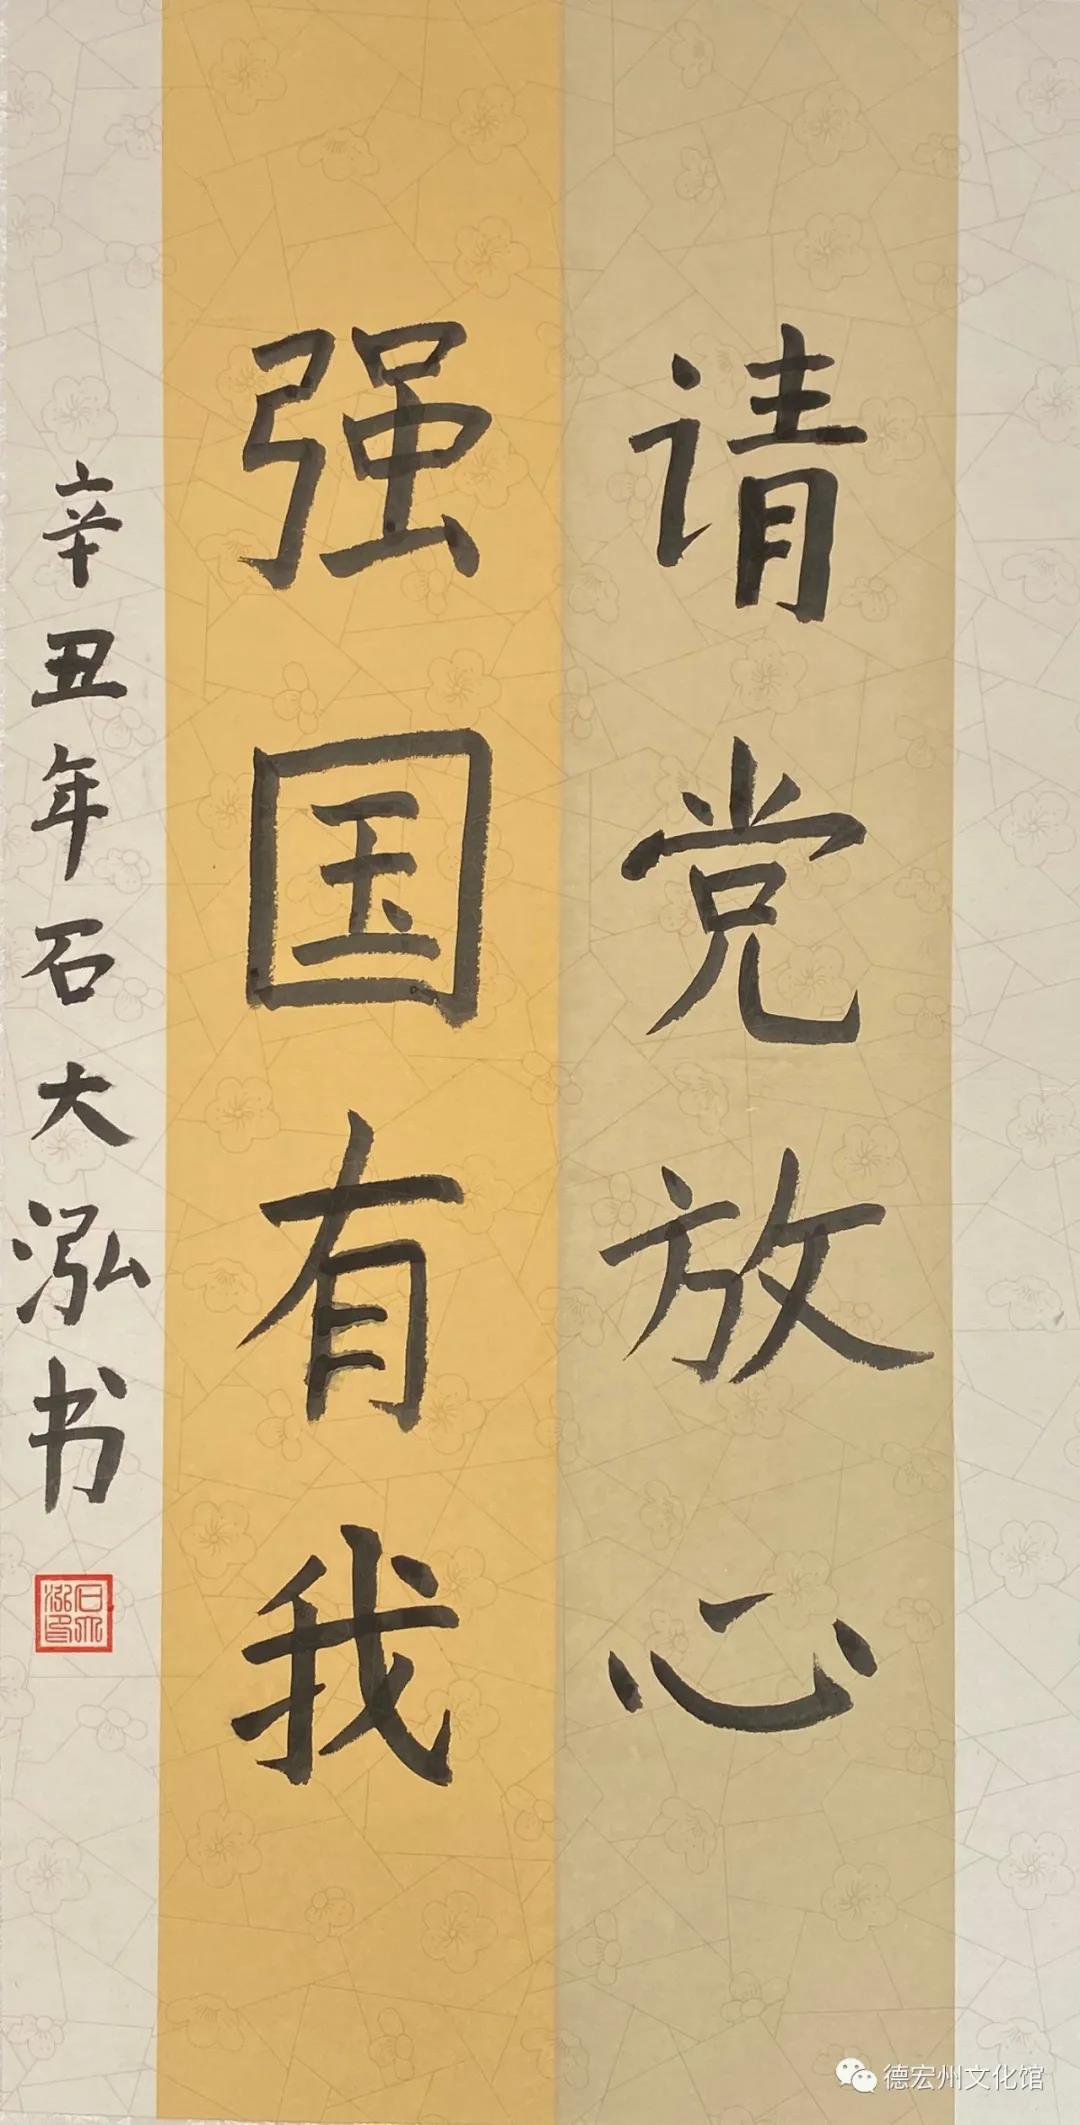 请党放心
强国有我
辛丑年石大泓书
石大泓印
德宏州文化馆